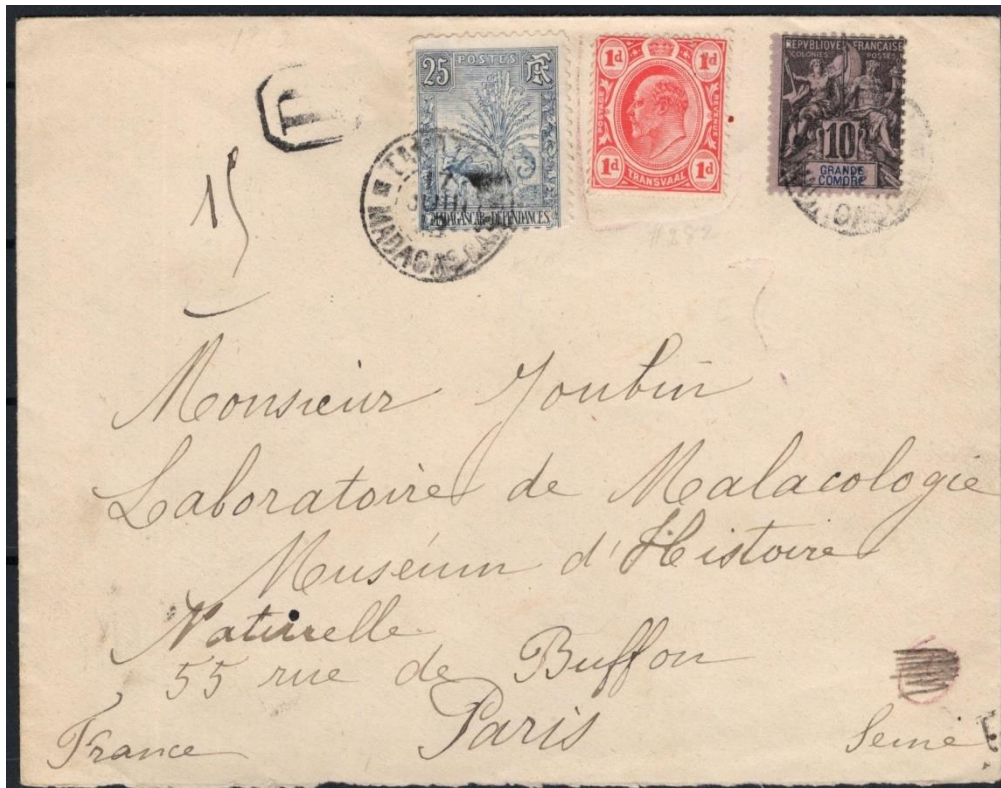 25 POSTES RF
MADAGASCAR ET DÉPENDANCES
1d 1d
POSTAGE REVENUE
1d TRANSVAAL 1d
REPUBLIQUE FRANÇAISE
COLONIES POSTES
10
GRANDE
COMORE
T
15
JUIN
MADAGASCAR
#282
Monsieur Joubin
Laboratoire de Malacologie
Muséum d'Histoire
Naturelle
55 rue de Buffon
Paris
France
Seine